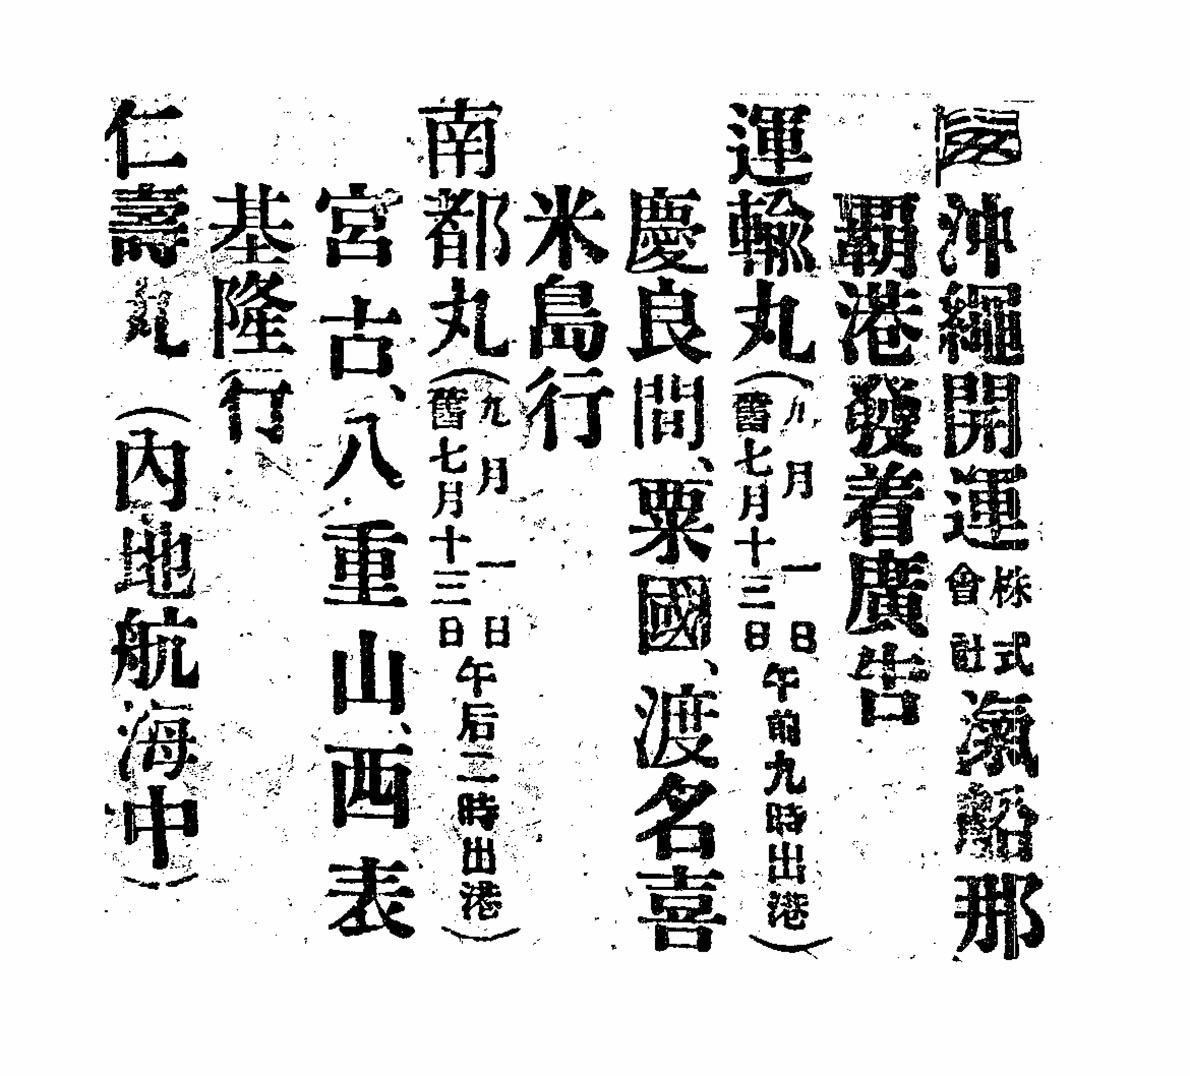 沖繩開運株式會社滊船那
覇港發着廣告
運輸丸(九月一日舊七月十三日午前九時出港)
慶良間、粟國、渡名喜
米島行
南都丸(九月一日舊七月十三日午后二時出港)
宮古、八重山、西表
基隆行
仁壽丸(內地航海中)